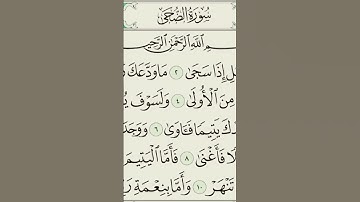 سُورَةُ الضُّحَىٰ
مِ ٱللَّهِ ٱلرَّحْمَٰنِ ٱلرَّحِي
لِ إِذَا سَجَىٰ ٢ مَا وَدَّعَكَ
مِنَ ٱلْأُولَىٰ ٤ وَلَسَوْفَ يُ
كَ يَتِيمًا فَـَٔاوَىٰ ٦ وَوَجَدَ
لًا فَأَغْنَىٰ ٨ فَأَمَّا ٱلْيَتِيمَ
تَنْهَرْ ١٠ وَأَمَّا بِنِعْمَةِ رَ